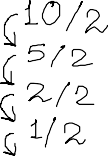 10/2
5/2
2/2
1/2